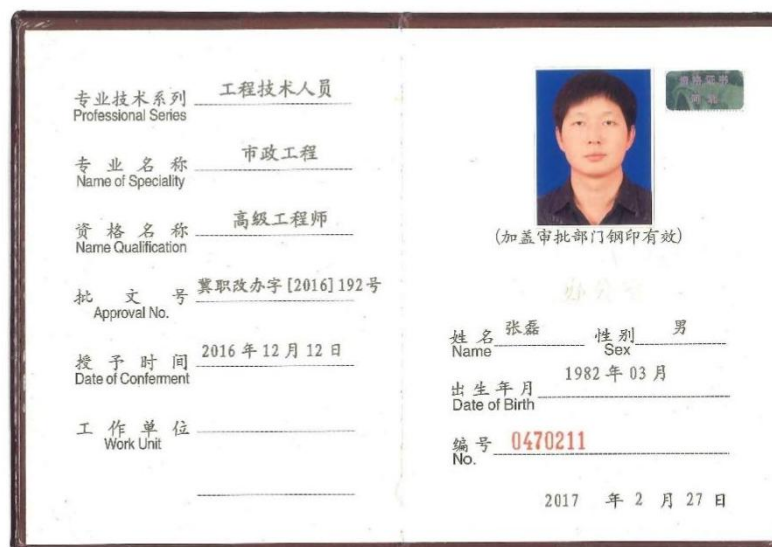 专业技术系列 工程技术人员
Professional Series
专业名称 市政工程
Name of Speciality
资格名称 高级工程师
Name Qualification
批文号 冀职改办字[2016]192号
Approval No.
授予时间 2016年12月12日
Date of Conferment
工作单位
Work Unit
资格证书
河北
(加盖审批部门钢印有效)
姓名 张磊 性别 男
Name Sex
出生年月 1982年03月
Date of Birth
编号 0470211
No.
2017 年 2 月 27 日